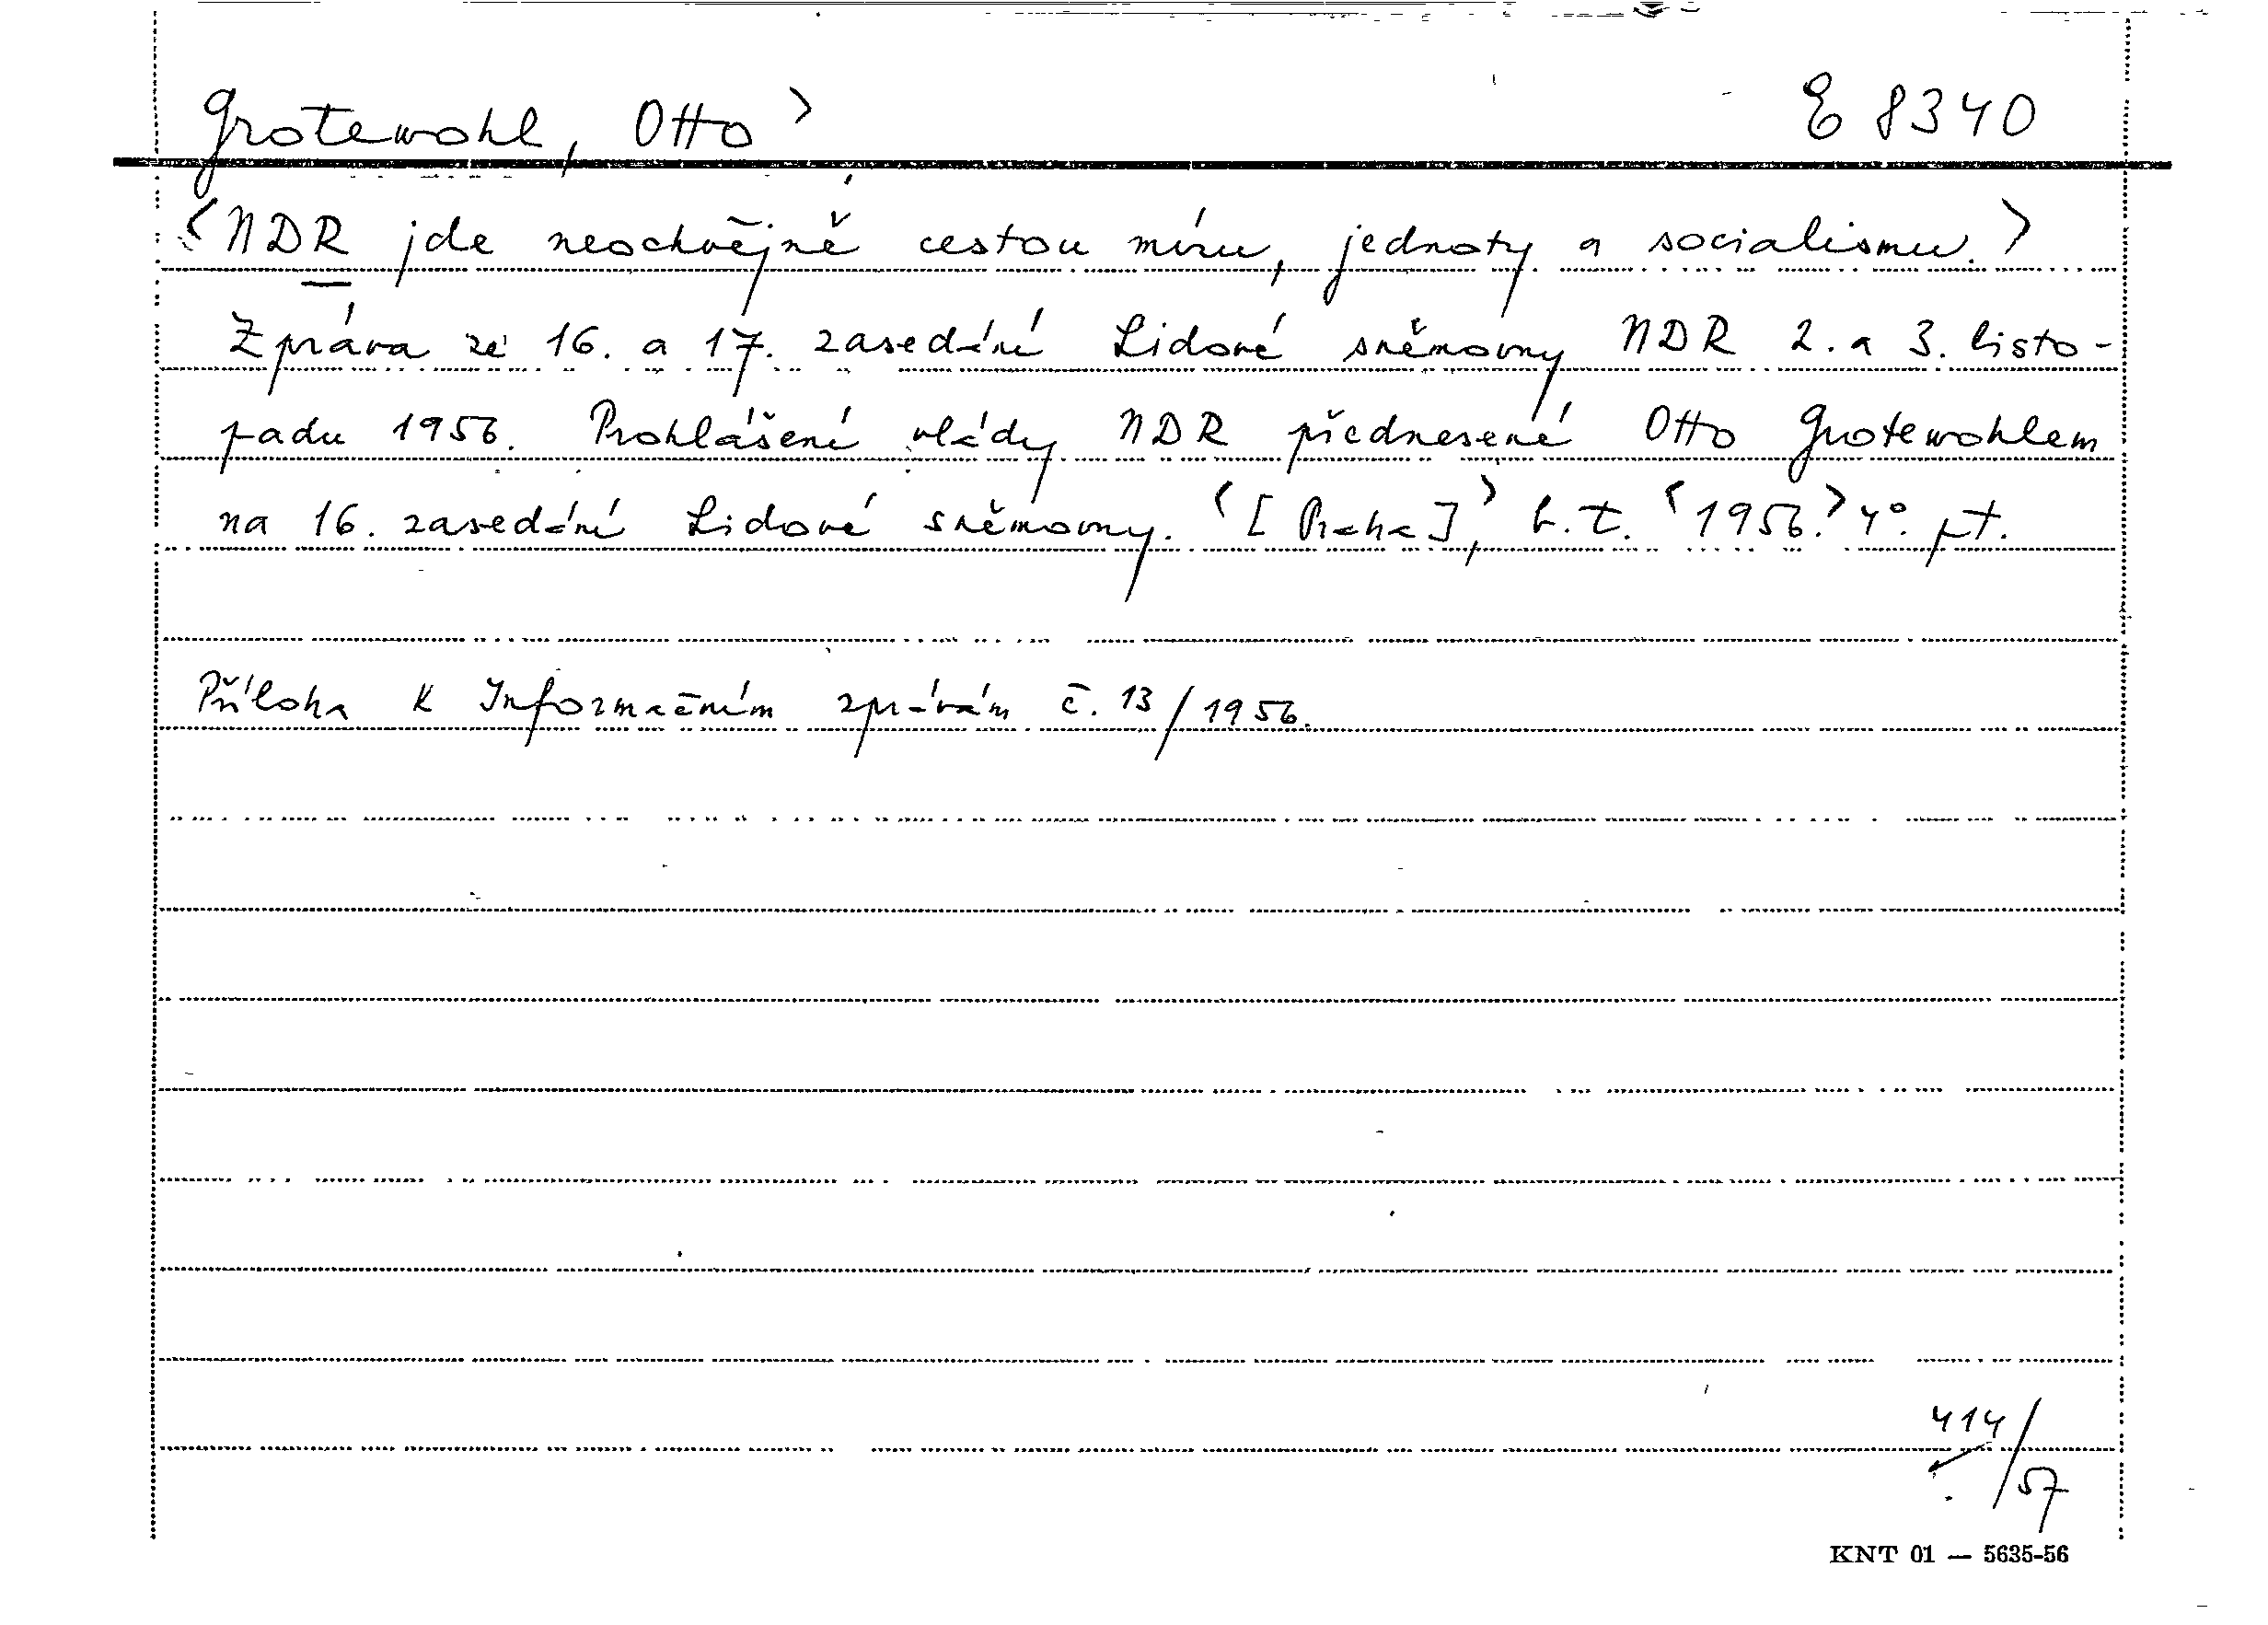 Grotewohl, Otto > E 8340
<NDR jde neochvějně cestou míru, jednoty a socialismu.>
Zpráva ze 16. a 17. zasedání Lidové sněmovny NDR 2. a 3. listo-
padu 1956. Prohlášení vlády NDR přednesené Otto Grotewohlem
na 16. zasedání Lidové sněmovny. <[Praha],> b.t. <1956.> 4°. pt.
Příloha k Informačním zprávám č. 13/1956.
414/57
KNT 01 — 5635-56